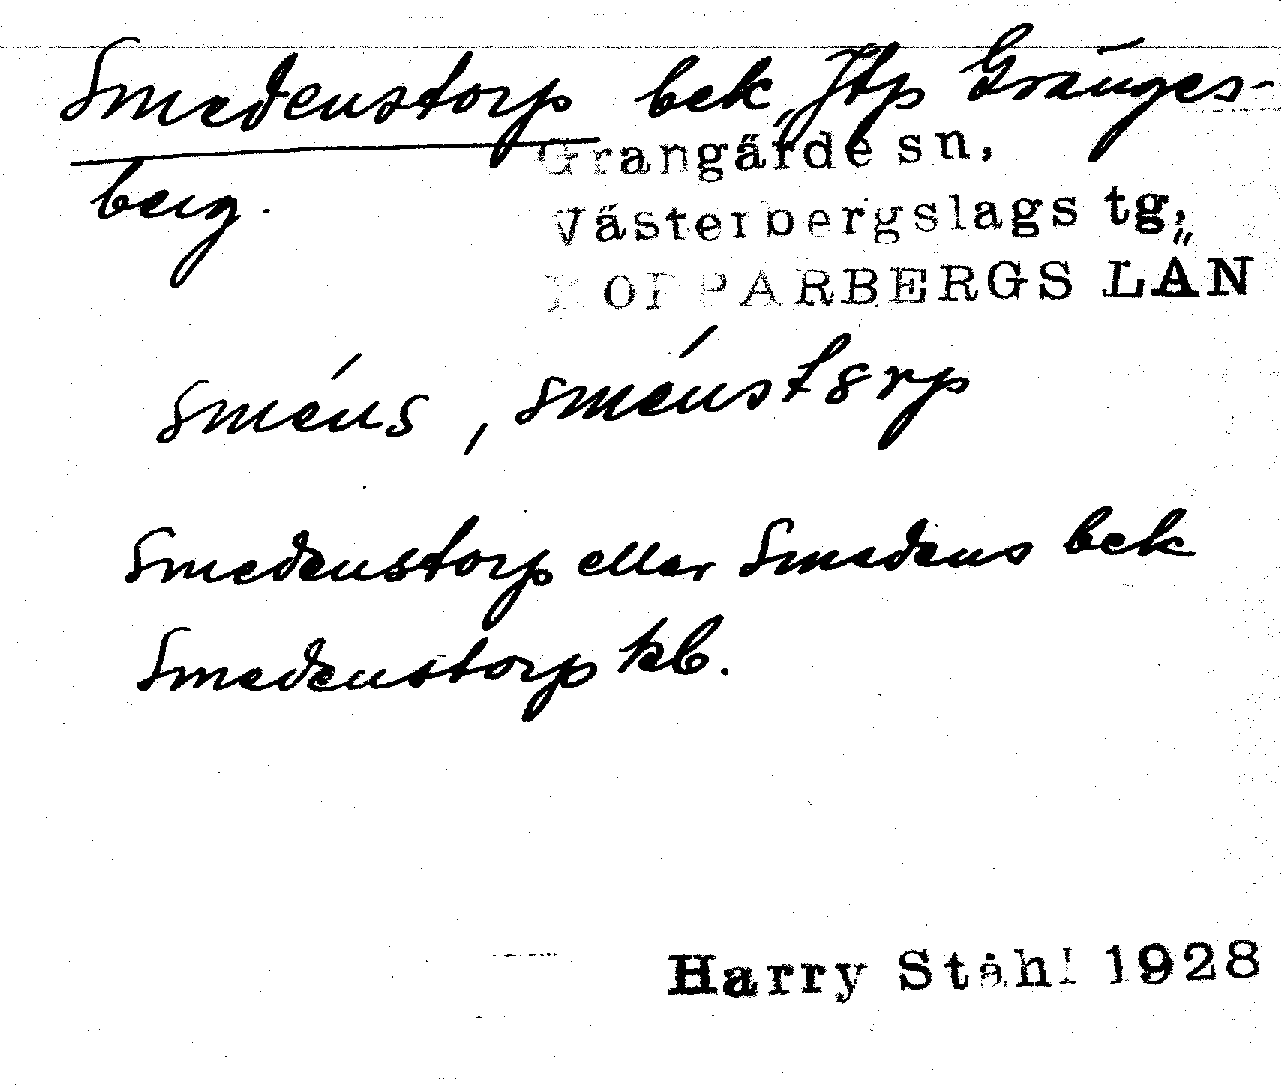 Smedenstorp bek, Jtp Gränges-
berg.
Grangärde sn,
Västerbergslags tg,
KOPPARBERGS LÄN
sméns, sménstorp
Smedenstorp eller Smedens bek
Smedenstorp kb.
Harry Ståhl 1928